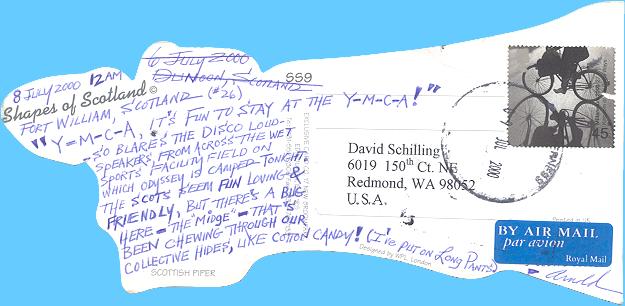 6 JULY 2000
DUNOON, SCOTLAND
SS9
8 JULY 2000 12AM
Shapes of Scotland©
FORT WILLIAM, SCOTLAND (#26)
"Y-M-C-A, IT'S FUN TO STAY AT THE Y-M-C-A!"
-SO BLARES THE DISCO LOUD-
SPEAKERS FROM ACROSS THE WET
SPORTS FACILITY FIELD ON
WHICH ODYSSEY IS CAMPED TONIGHT.
THE SCOTS SEEM FUN LOVING &
FRIENDLY, BUT THERE'S A BUG
HERE - THE "MIDGE" - THAT'S
BEEN CHEWING THROUGH OUR
COLLECTIVE HIDES, LIKE COTTON CANDY! (I'VE PUT ON LONG PANTS)
Arnold
SCOTTISH PIPER
Designed by WPL, London
David Schilling
6019 150th Ct. NE
Redmond, WA 98052
U.S.A.
45
JUL 2000
BY AIR MAIL
par avion
Royal Mail